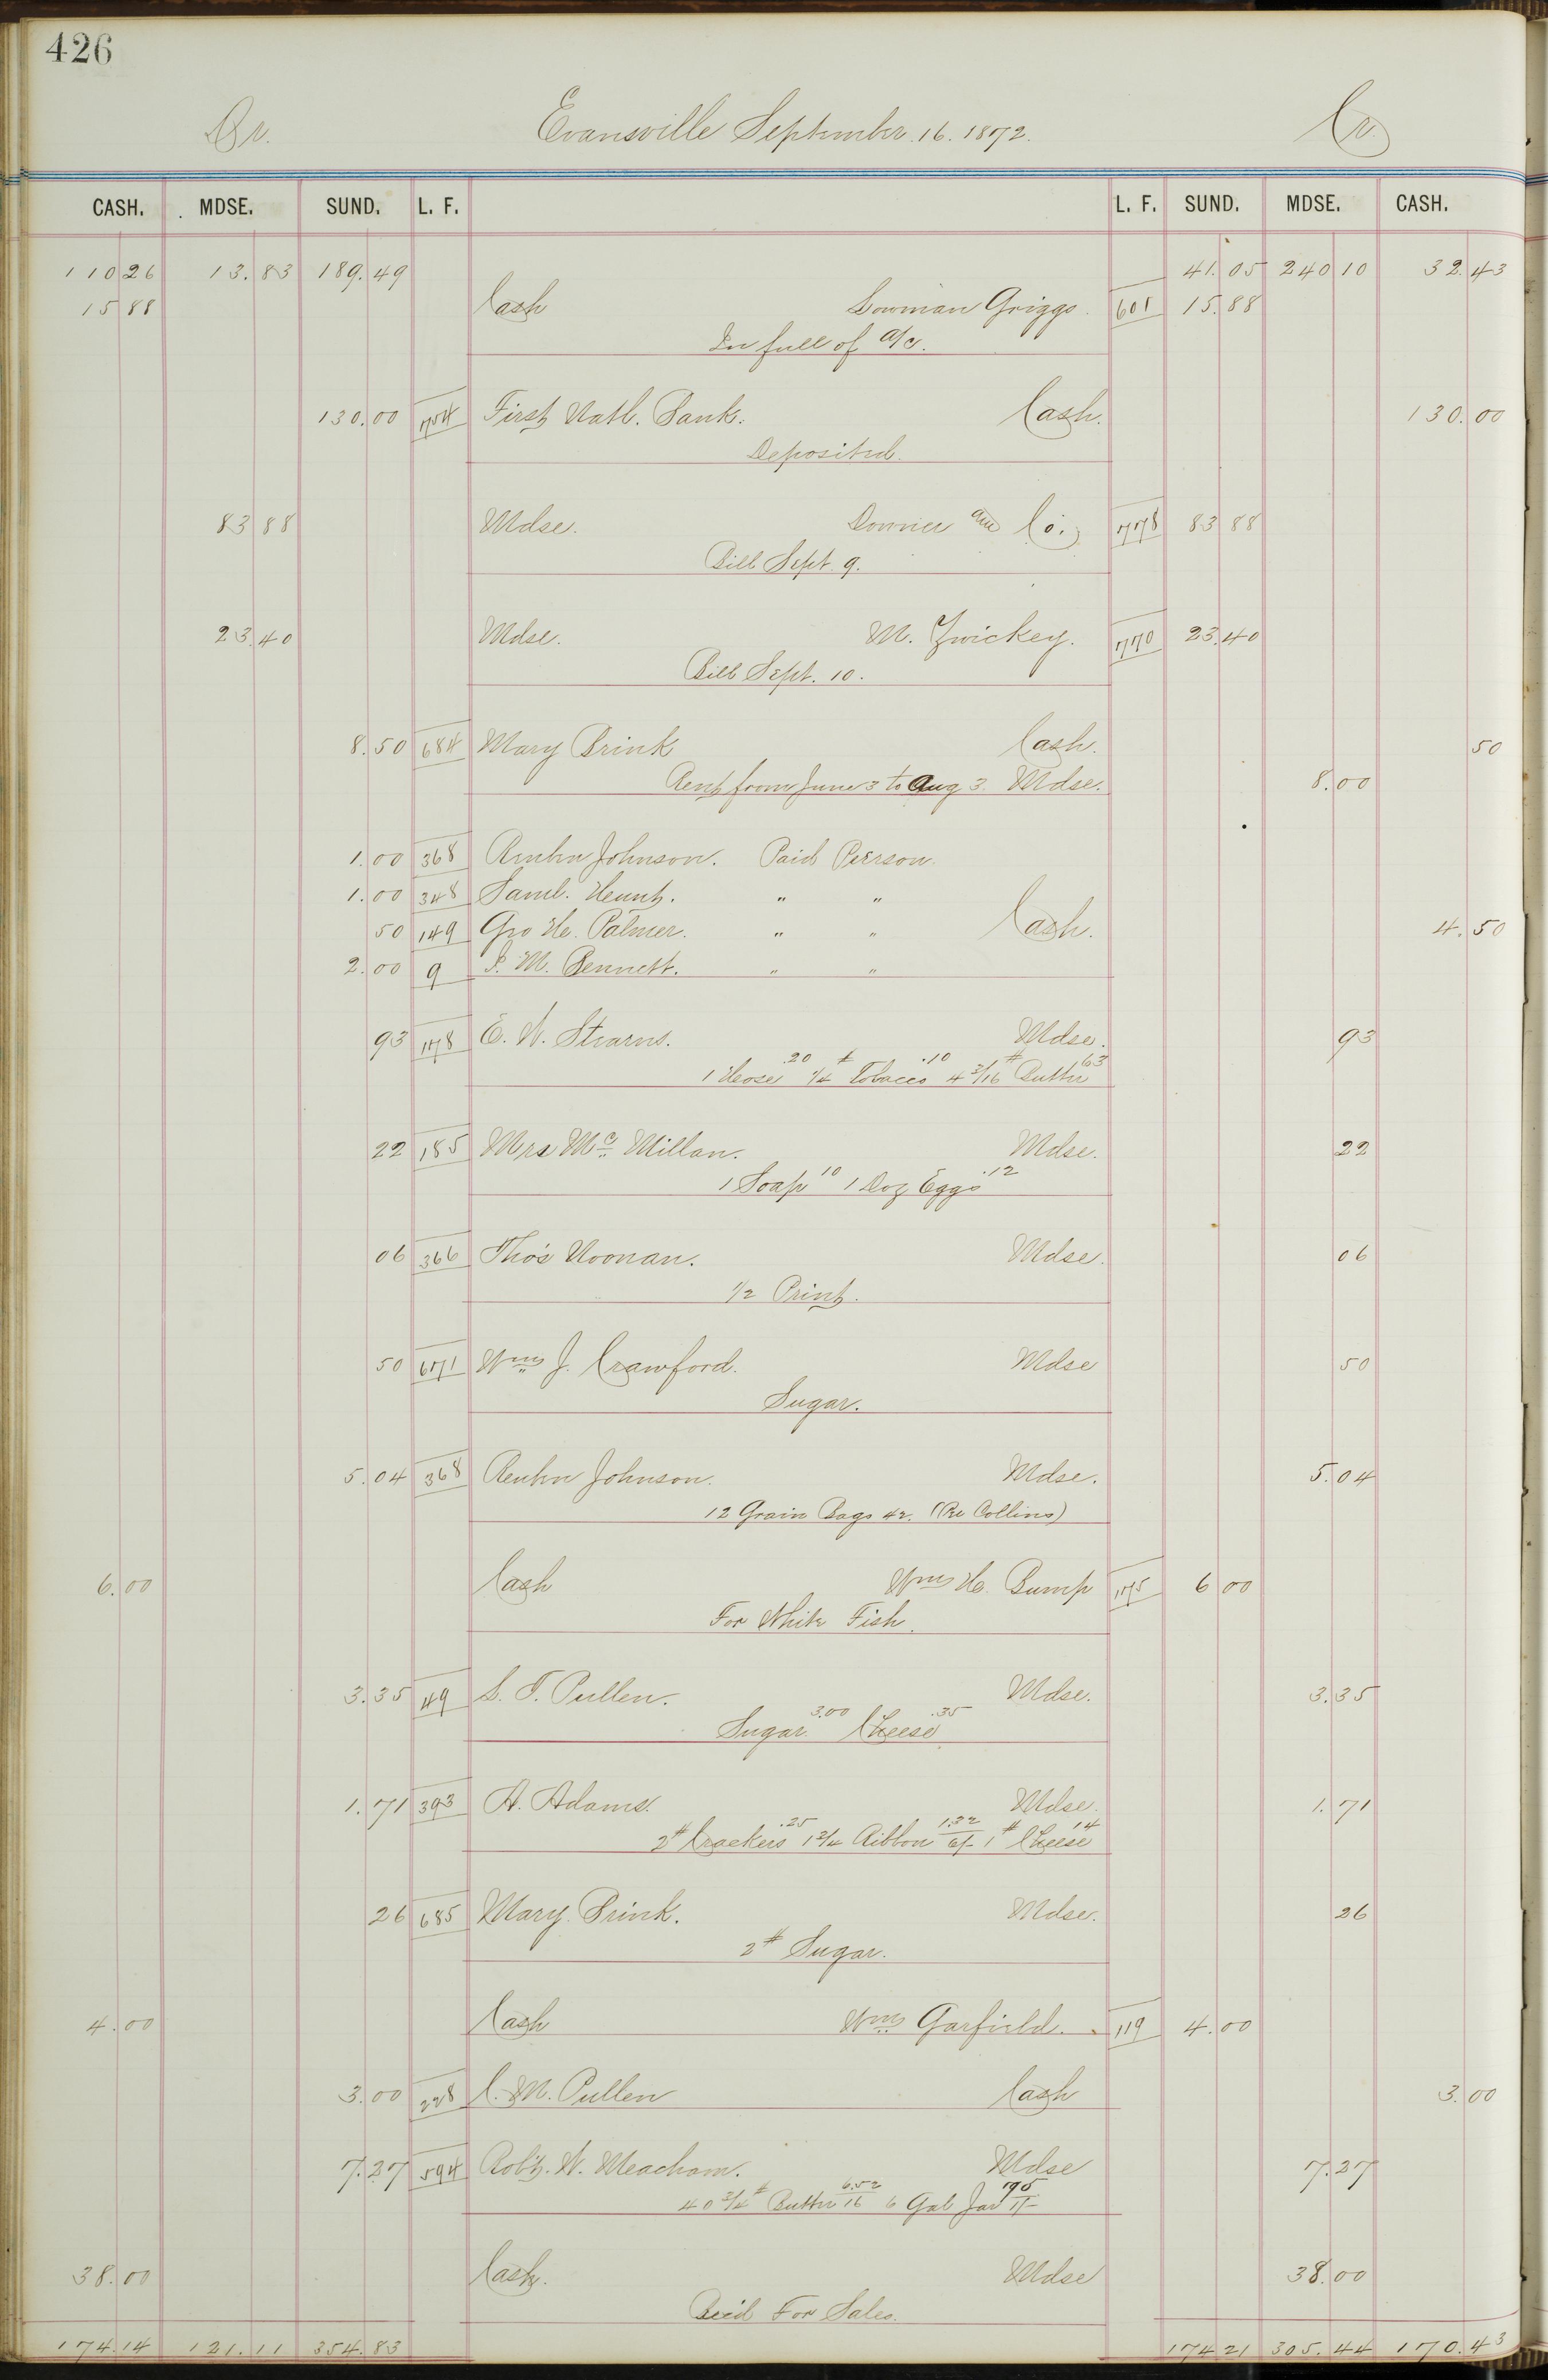 426
Dr. Evansville September. 16. 1872. Cr.
CASH. MDSE. SUND. L. F. L. F. SUND. MDSE. CASH.
110 26 13.83 189.49 41.05 240 10 32.43
15 88 Cash Lowman Griggs. 601 15.88
In full of a/c.
130.00 754 First Natl. Bank. Cash. 130.00
Deposited.
83 88 Mdse. and Co. 778 83 88
Bill Sept. 9.
23.40 Mdse. M. Zwickey. 770 23.40
Bill Sept. 10.
8.50 684 Mary Brink Cash. 50
Rent from June 3 to Aug 3. Mdse. 8.00
1.00 368 Reuben Johnson. Paid Pierson
1.00 348 Saml. Hunt. " "
50 149 Geo H. Palmer. " " Cash. 4.50
2.00 9 I. M. Bennett. " "
93 178 E. W. Stearns. Mdse. 93
1 Hose .20 1/4 # Tobacco .10 4 3/16 # Butter 63
22 185 Mrs Mc Millan. Mdse. 22
1 Soap 10 1 Doz Eggs .12
06 366 Tho's Noonan. Mdse. 06
1/2 Print.
50 671 Wm J. Crawford. Mdse 50
Sugar.
5.04 368 Reuben Johnson. Mdse. 5.04
12 Grain Bags 42. (Pr Collins)
6.00 Cash Wm H. Bump 175 6 00
For White Fish.
3.35 49 S. T. Pullen. Mdse. 3.35
Sugar 3.00 Cheese .35
1.71 393 A. Adams. Mdse. 1.71
2# Crackers .25 1 3/4 Ribbon 1.32 6/- 1# Cheese 14
26 685 Mary Brink. Mdse. 26
2# Sugar.
4.00 Cash Wm Garfield. 119 4.00
3.00 228 C. M. Pullen Cash 3.00
7.27 594 Rob't. W. Meacham. Mdse 7.27
40 3/4 # Butter 6.52 16 6 Gal Jar
38.00 Cash. Mdse 38.00
Rec'd For Sales.
174.14 121.11 354.83 174 21 305.44 170.43